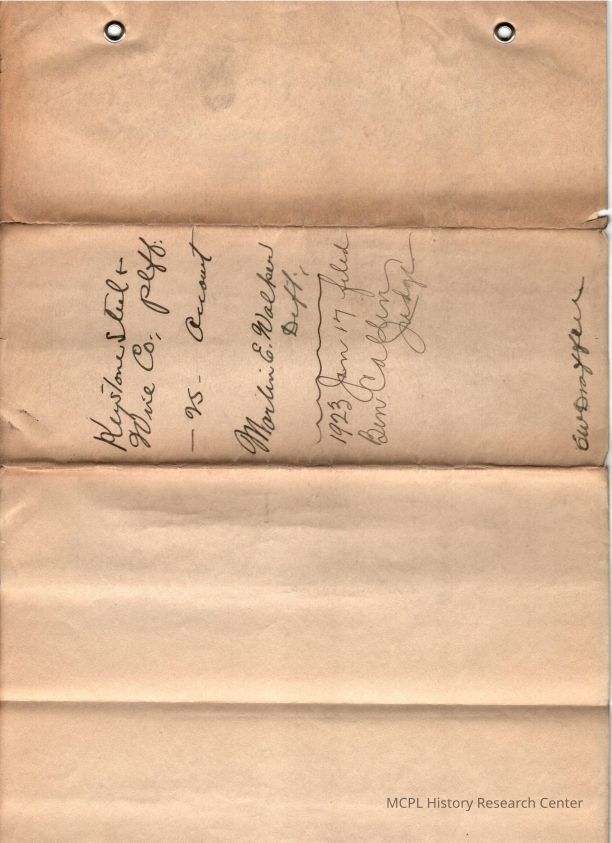 Keystone Steel &
Wire Co., Plff.
- vs - Account
Marlin E. Walker
Deft.
1923 Jan 17 filed
Ben
Judge
MCPL History Research Center